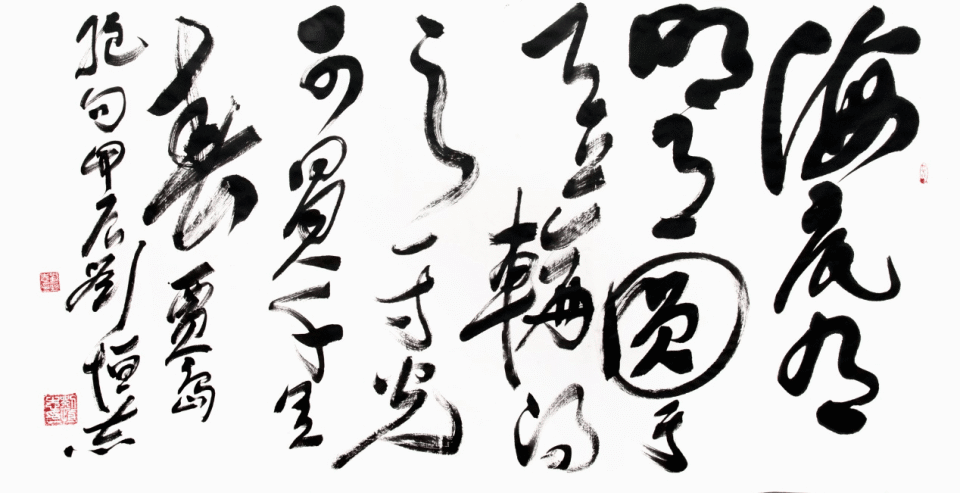 海底有
明月圓于
天上輪得
之一寸光
可買千里
春 賈島
絕句甲辰劉恒志